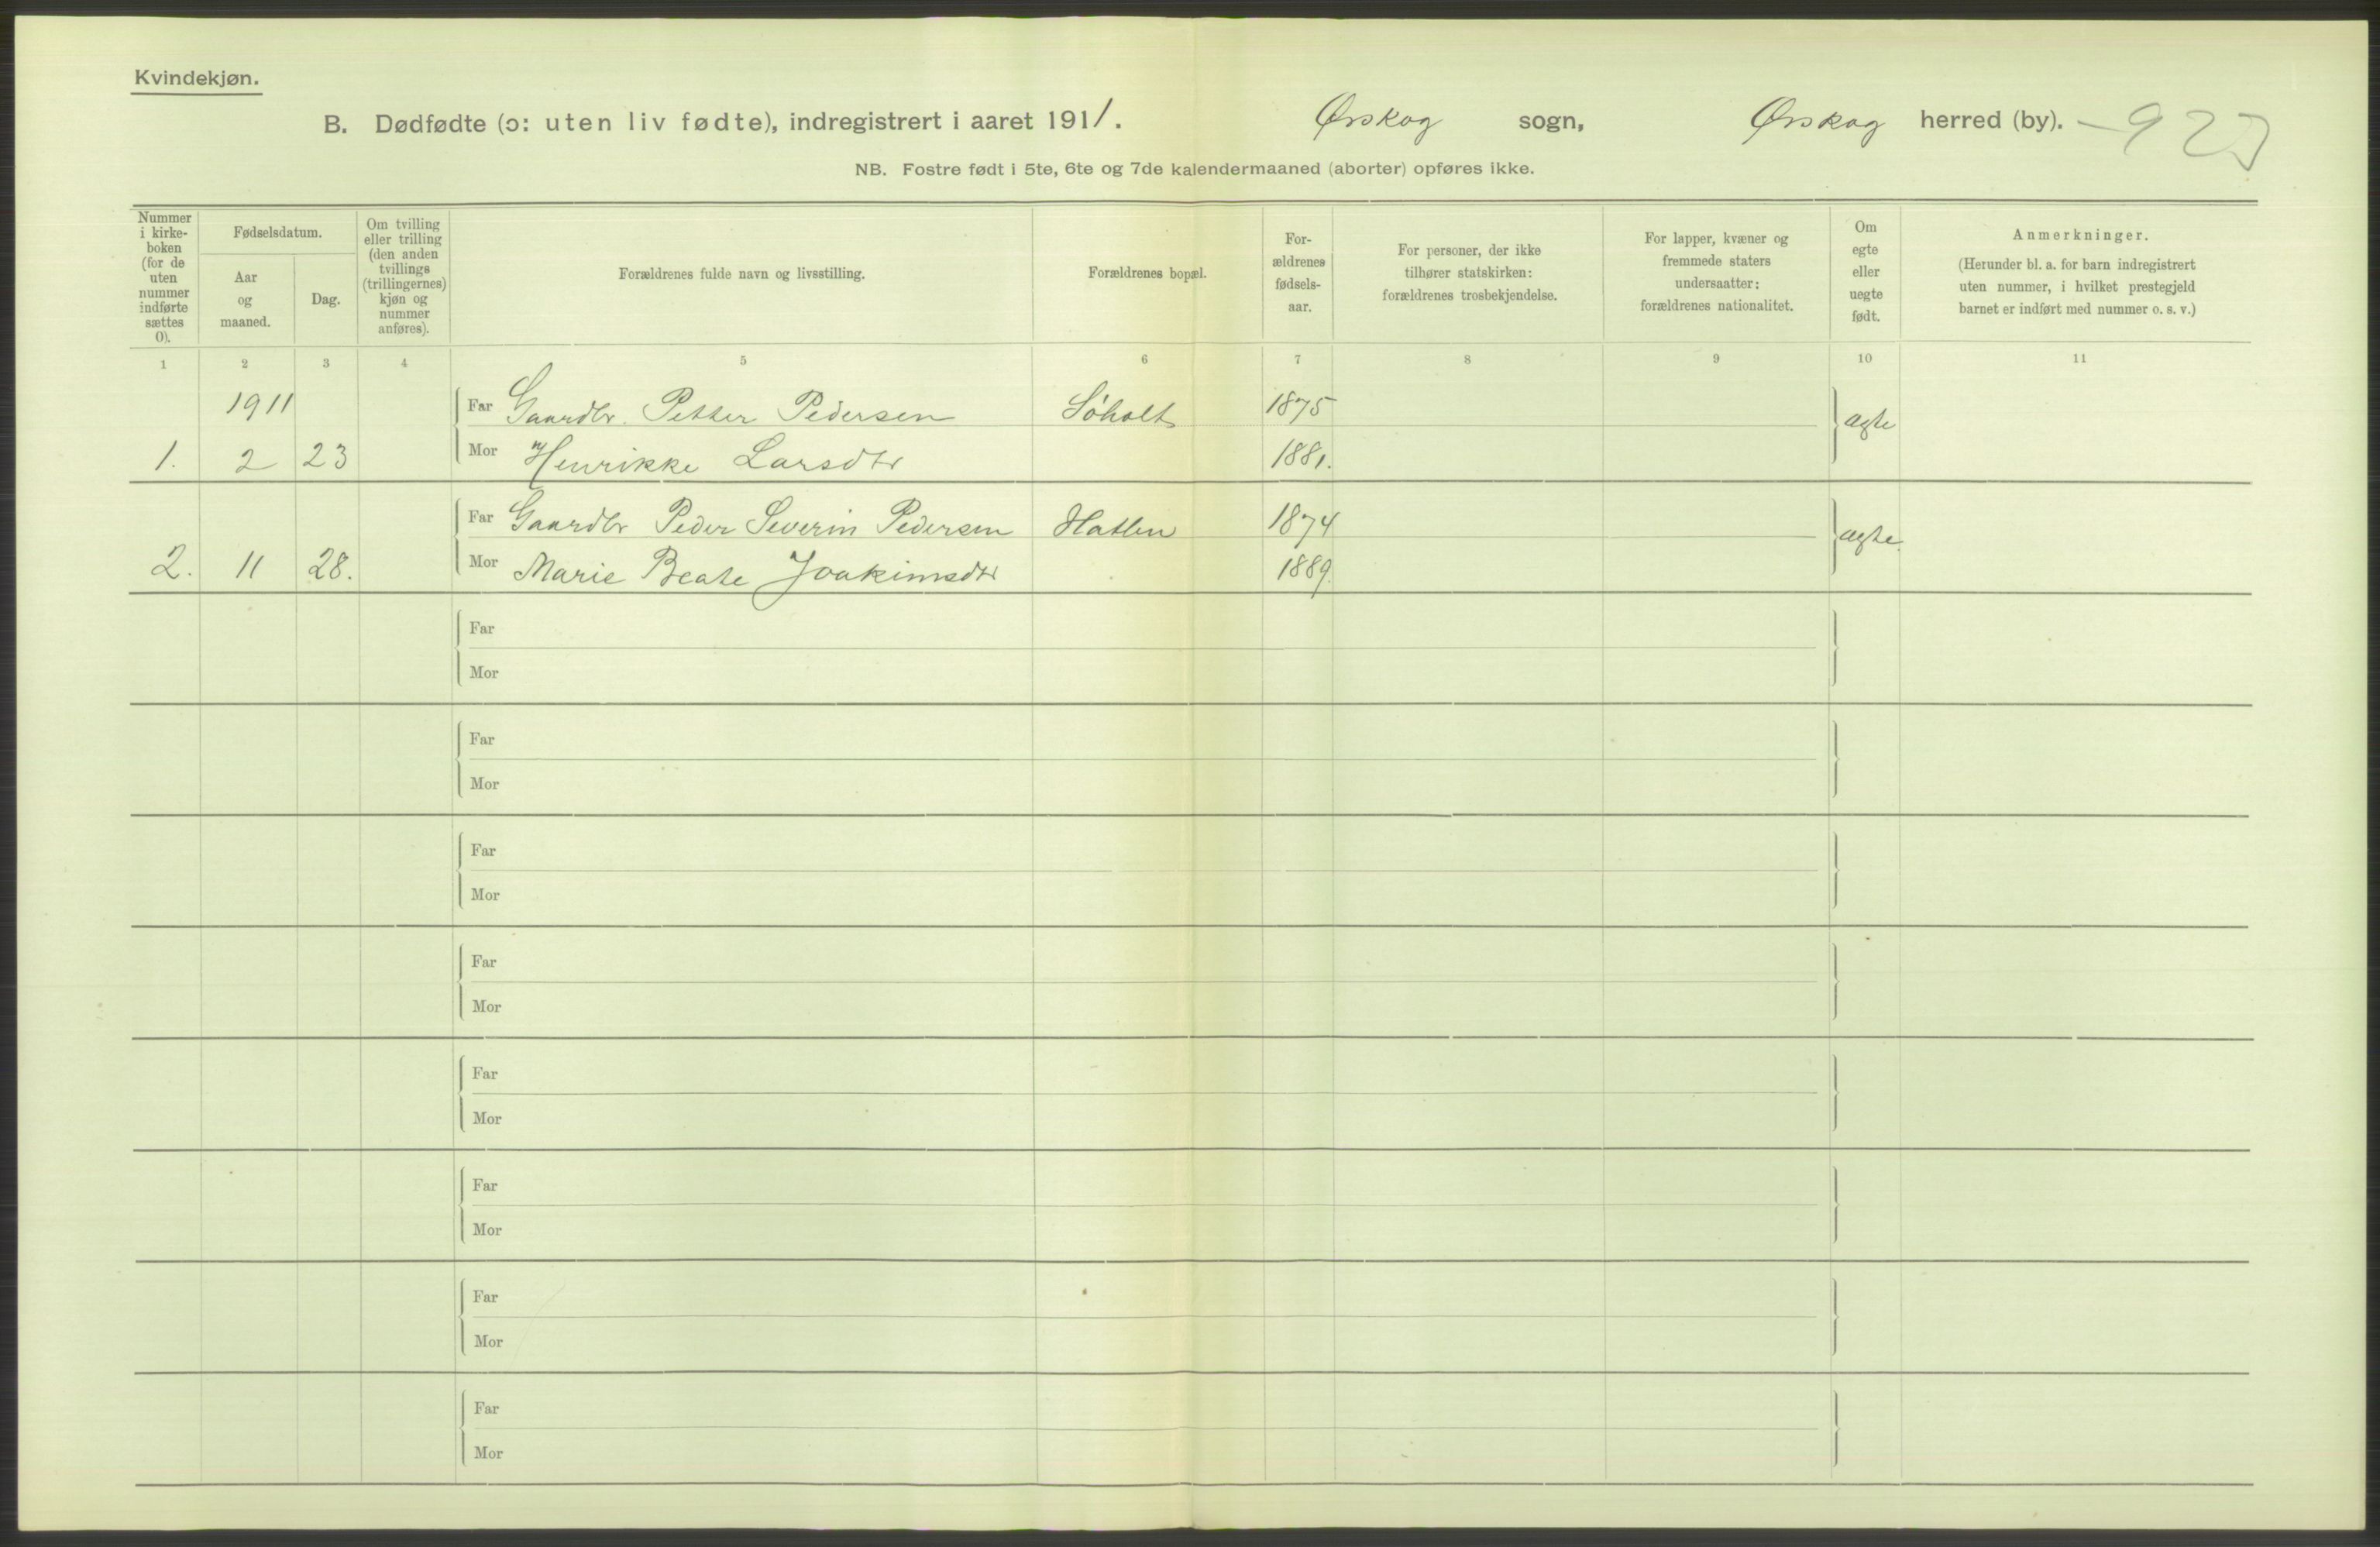 Kvindekjøn.
B. Dødfødte (ɔ: uten liv fødte), indregistrert i aaret 1911. Ørskog sogn, Ørskog herred (by). — 923
NB. Fostre født i 5te, 6te og 7de kalendermaaned (aborter) opføres ikke.
Nummer i kirke-boken (for de uten nummer indførte sættes 0).
Fødselsdatum.
Aar og maaned.
Dag.
Om tvilling eller trilling (den anden tvillings (trillingernes) kjøn og nummer anføres).
Forældrenes fulde navn og livsstilling.
Forældrenes bopæl.
For-ældrenes fødsels-aar.
For personer, der ikke tilhører statskirken: forældrenes trosbekjendelse.
For lapper, kvæner og fremmede staters undersaatter: forældrenes nationalitet.
Om egte eller uegte født.
Anmerkninger.
(Herunder bl. a. for barn indregistrert uten nummer, i hvilket prestegjeld barnet er indført med nummer o. s. v.)
1 2 3 4 5 6 7 8 9 10 11
1911 Far Gaardbr. Petter Pedersen Søholt 1875 ægte
1. 2 23 Mor Henrikke Larsdtr 1881.
Far Gaardbr Peder Severin Pedersen Hatlen 1874 ægte
2. 11 28. Mor Marie Beate Joakimsdtr 1889.
Far
Mor
Far
Mor
Far
Mor
Far
Mor
Far
Mor
Far
Mor
Far
Mor
Far
Mor